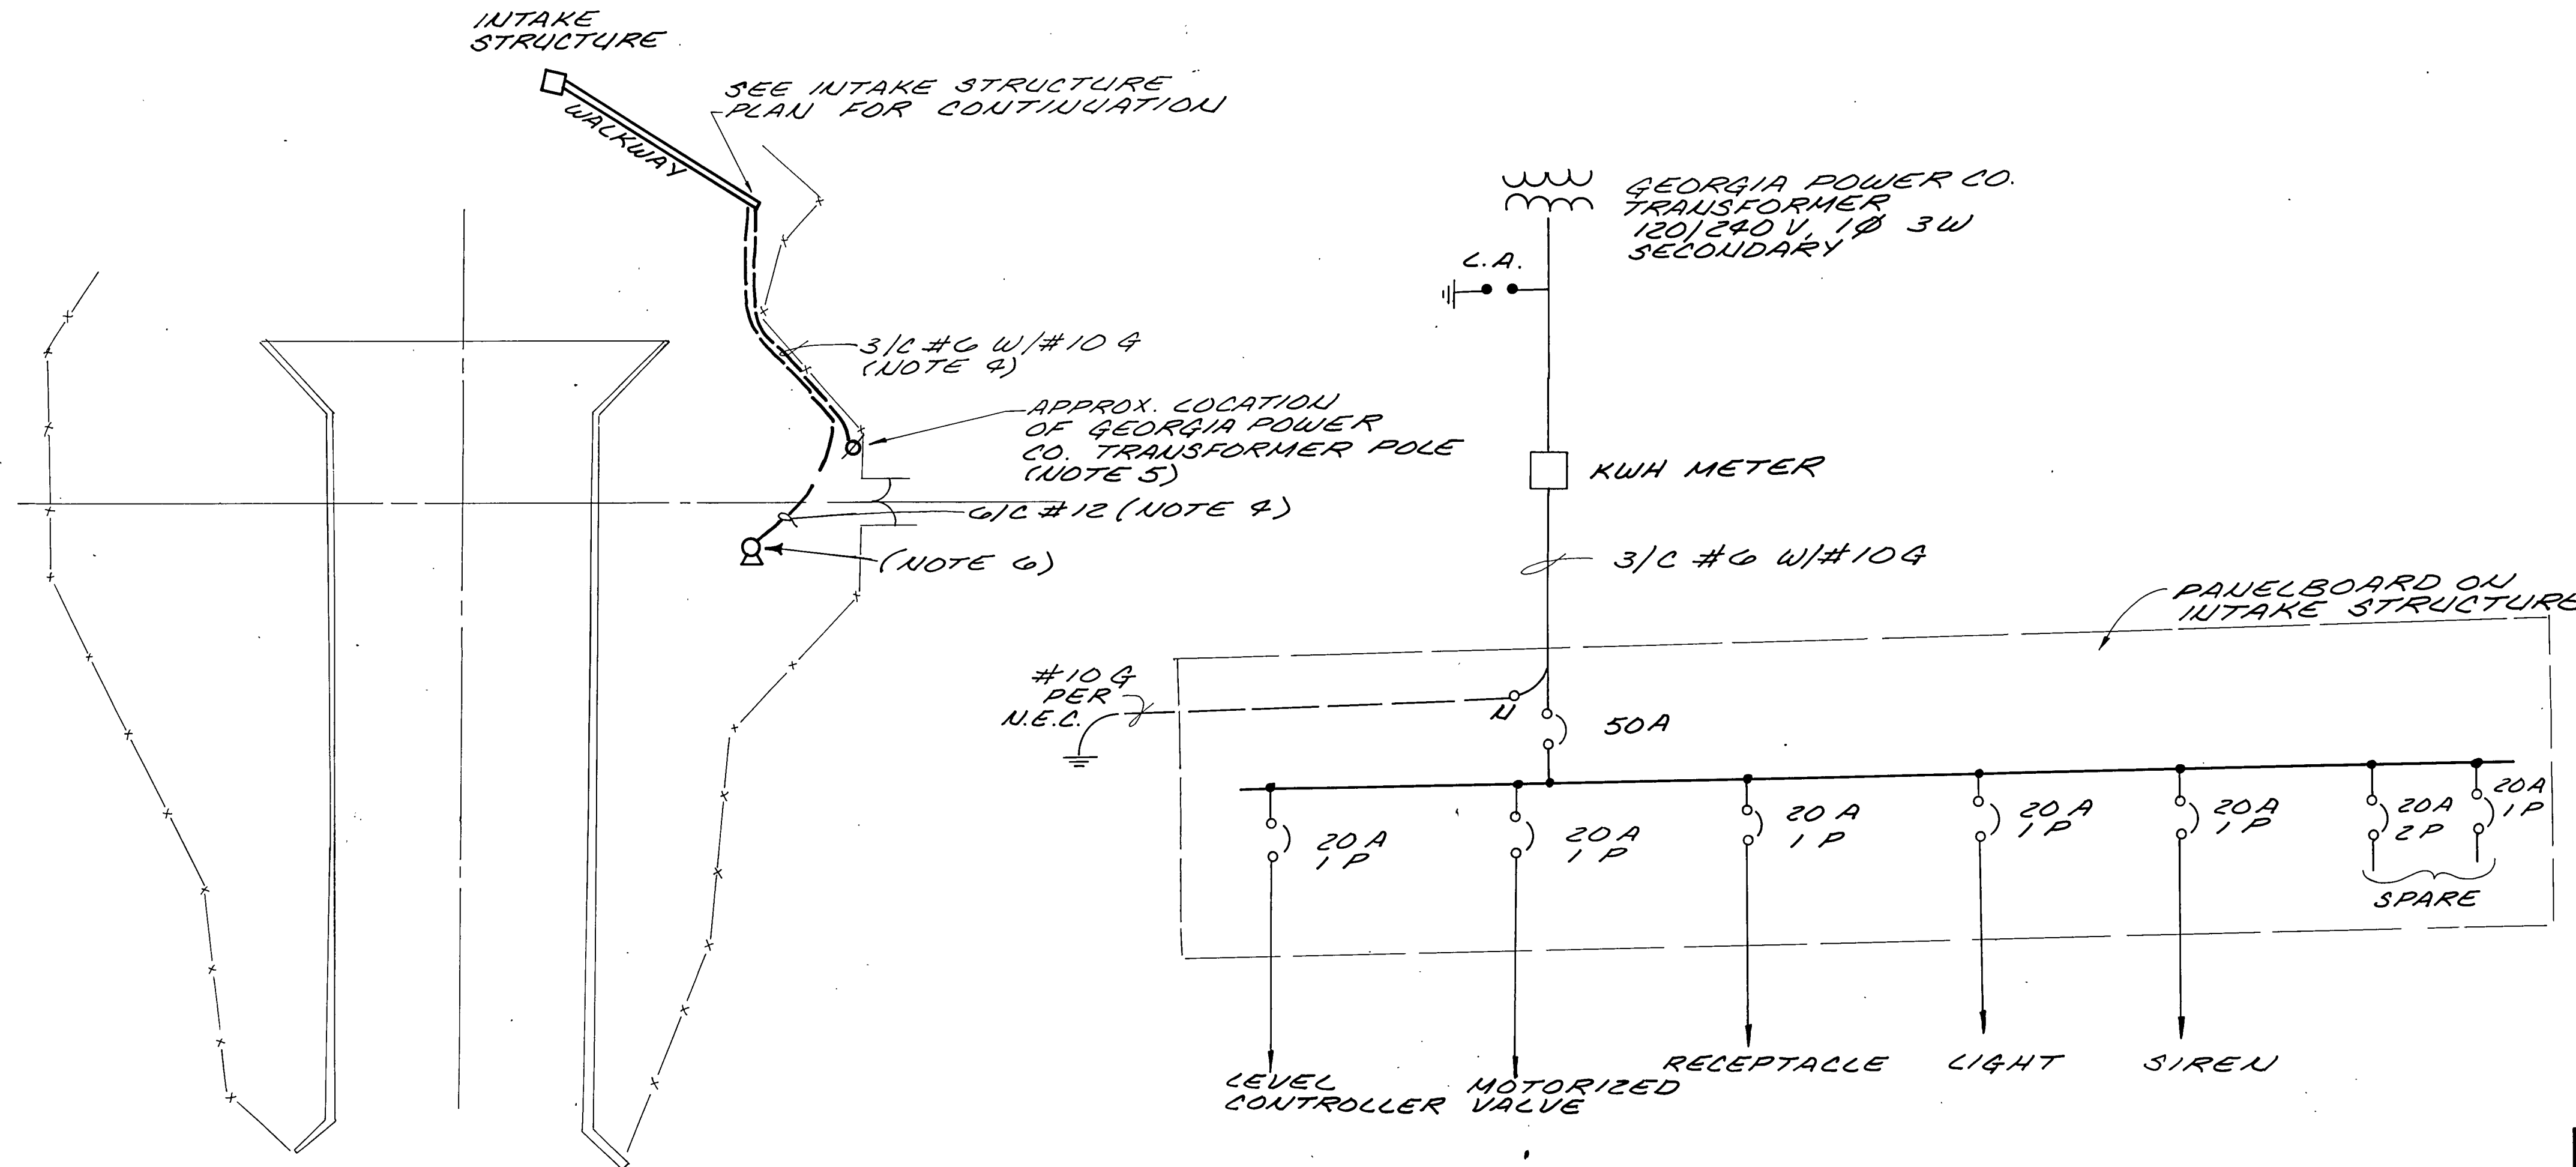 INTAKE
STRUCTURE
SEE INTAKE STRUCTURE
PLAN FOR CONTINUATION
WALKWAY
3/C #6 W/#10 G
(NOTE 4)
APPROX. LOCATION
OF GEORGIA POWER
CO. TRANSFORMER POLE
(NOTE 5)
6/C #12 (NOTE 4)
(NOTE 6)
GEORGIA POWER CO.
TRANSFORMER
120/240 V, 1Ø 3W
SECONDARY
L.A.
KWH METER
3/C #6 W/#10G
PANELBOARD ON
INTAKE STRUCTURE
#10 G
PER
N.E.C.
N
50A
20A
1 P
20A
1 P
20A
1 P
20A
1 P
20A
1 P
20A
2 P
20A
1 P
SPARE
LEVEL
CONTROLLER
MOTORIZED
VALVE
RECEPTACLE
LIGHT
SIREN